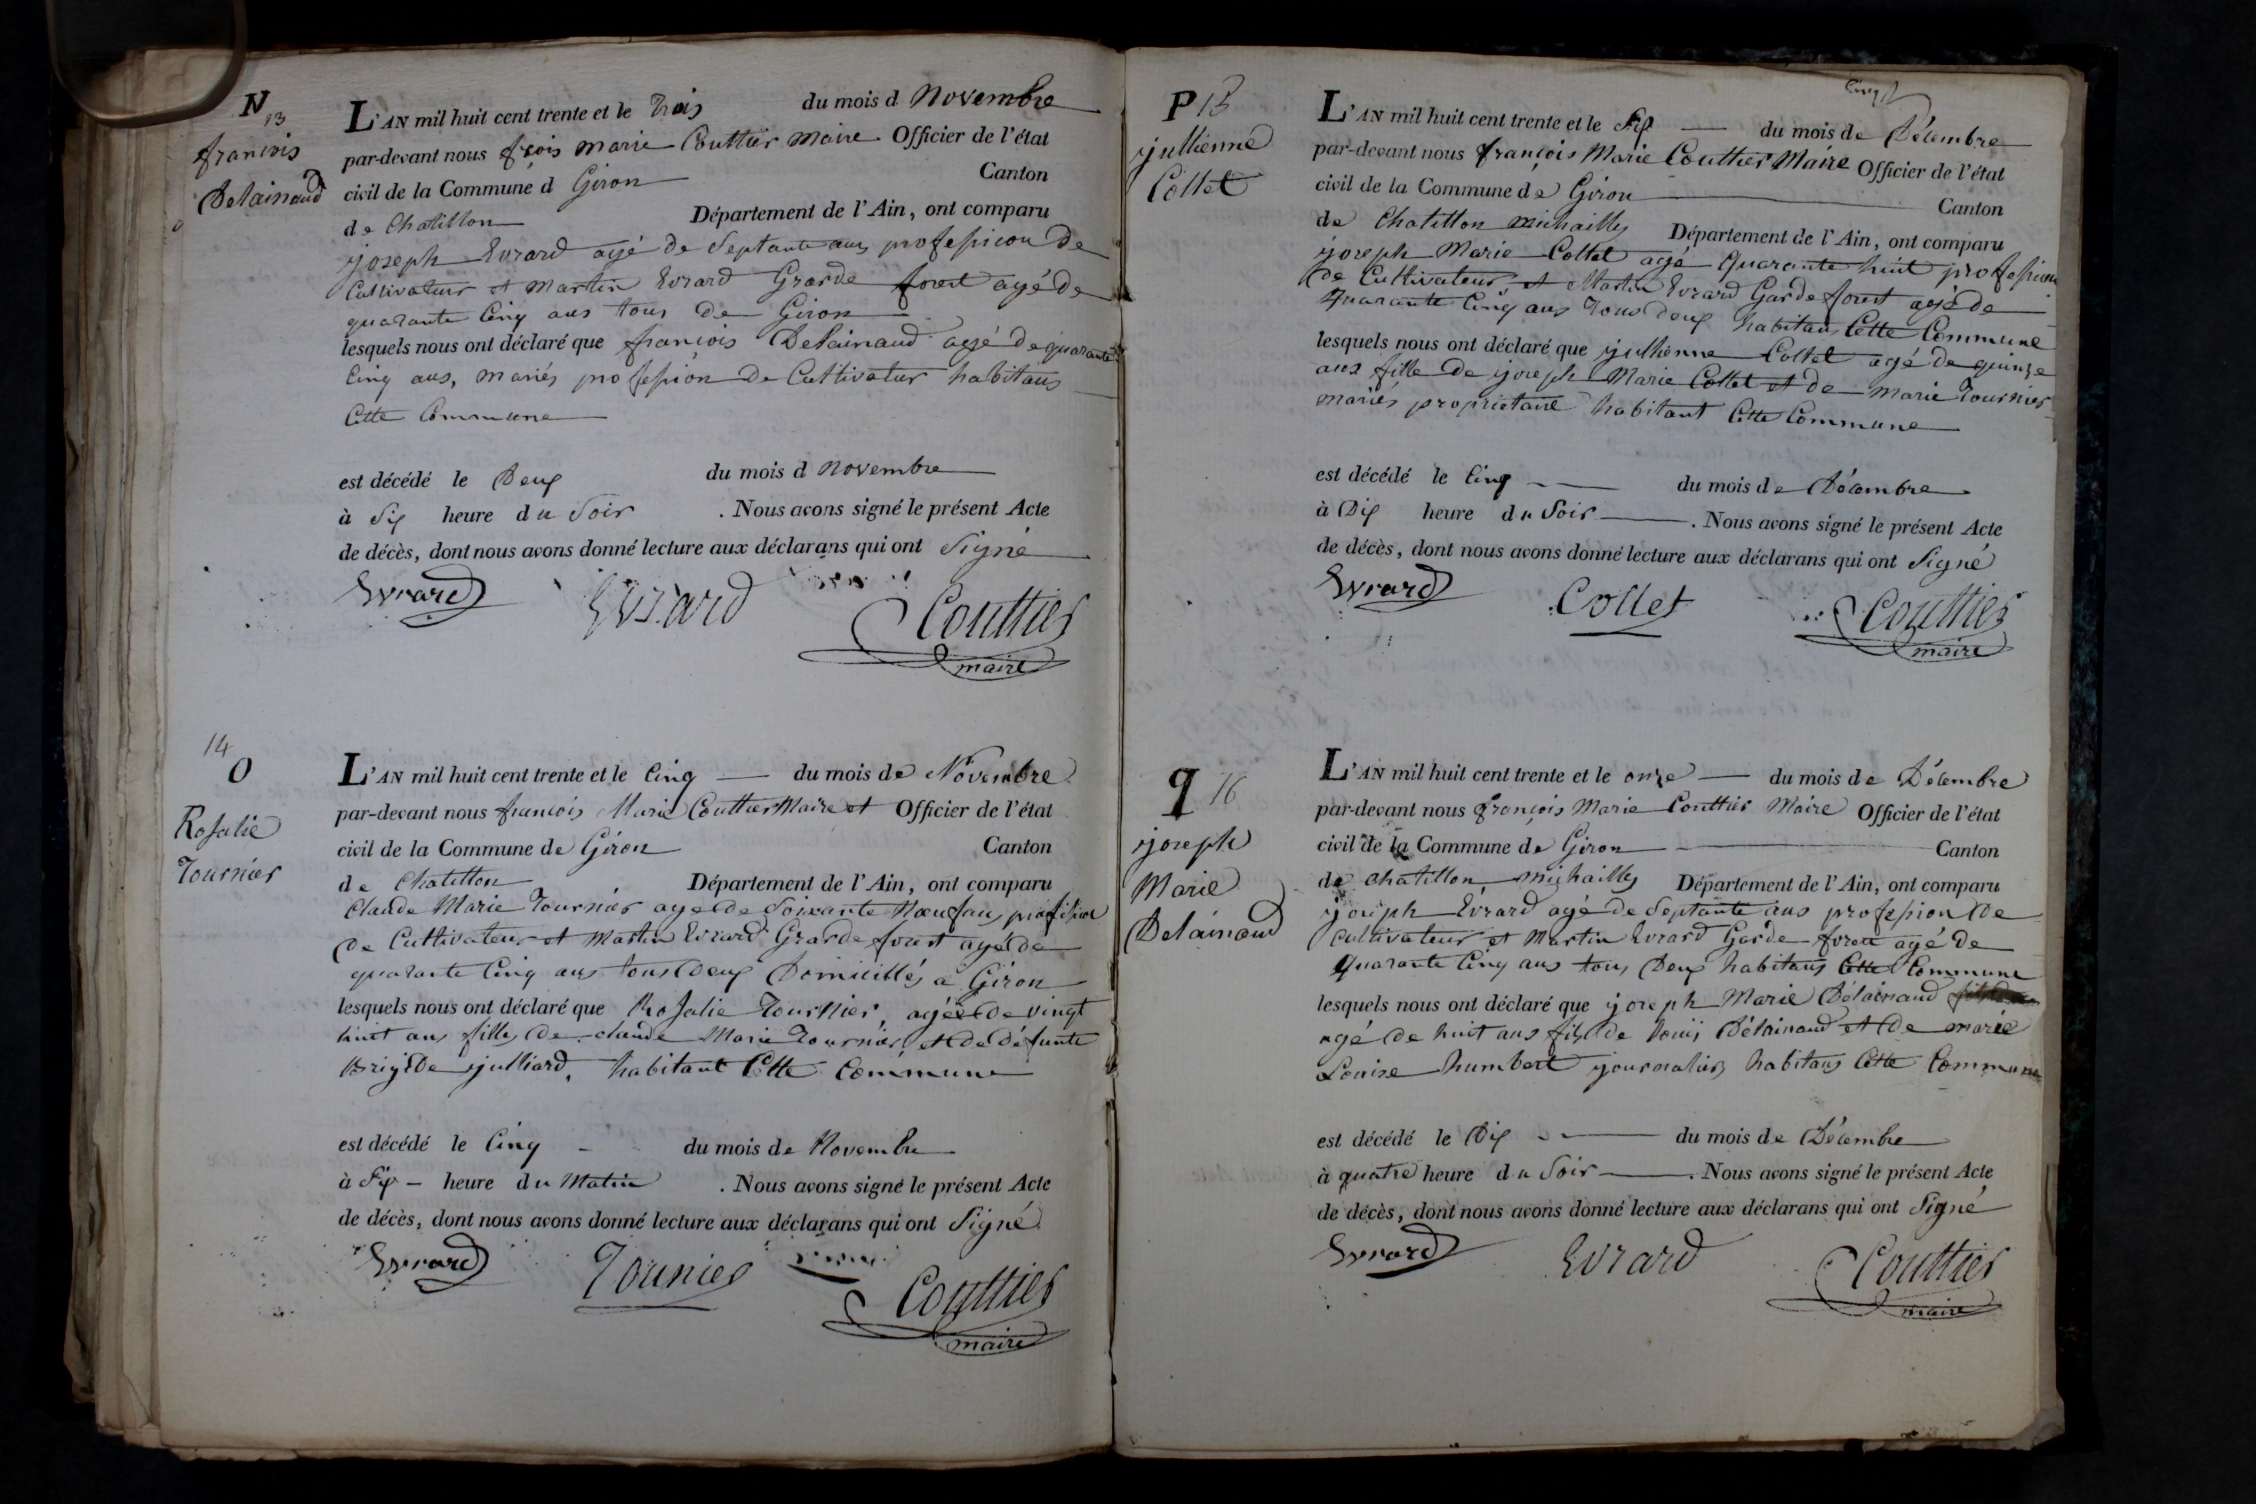 N
13
francois
Delainaud
L'AN mil huit cent trente et le trois du mois d Novembre
par-devant nous frçois marie Couttier maire Officier de l'état
civil de la Commune d Giron Canton
de Chatillon Département de l'Ain, ont comparu
joseph Evrard agé de Septante ans profession de
Cultivateur et Martin Evrard Grarde forest agé de
quarante Cinq ans tous de Giron
lesquels nous ont déclaré que francois Delainaud agé de quarante
Cinq ans, mariés profession de Cultivatur habitans
Cette Commune
est décédé le Deux du mois d novembre
à Six heure du Soir . Nous avons signé le présent Acte
de décès, dont nous avons donné lecture aux déclarans qui ont Signé
Evrard Evrard Couttier
maire
14
O
Rosalie
Tournier
L'AN mil huit cent trente et le Cinq du mois de Novembre
par-devant nous francois Marie Couttier Maire et Officier de l'état
civil de la Commune de Giron Canton
de Chatillon Département de l'Ain, ont comparu
Claude Marie Tournier agé de Soixante Nœuf ans profession
de Cultivateur et Martin Evrard Grarde forest agé de
quarante Cinq ans tous Deux Domicillés a Giron
lesquels nous ont déclaré que Rosalie Tournier, agée de vingt
huit ans fille de claude Marie Tournier, et de défunte
Brigide julliard, habitant Cette Commune
est décédé le Cinq du mois de Novembre
à Six heure du Matin . Nous avons signé le présent Acte
de décès, dont nous avons donné lecture aux déclarans qui ont Signé
Evrard Tounier Couttier
maire
P 15
jullienne
Collet
Cinq
L'AN mil huit cent trente et le Six du mois de Décembre
par-devant nous françois Marie Couttier Maire Officier de l'état
civil de la Commune de Giron Canton
de Chatillon michailles Département de l'Ain, ont comparu
joseph Marie Collet agé Quarante huit profession
de Cultivateur et Martin Evrard Garde forest agé de
Quarante Cinq ans Tous deux habitans Cette Commune
lesquels nous ont déclaré que jullienne Collet agé de quinze
ans fille de joseph Marie Collet et de marie Tournier
mariés proprietaire habitant Cette Commune
est décédé le Cinq du mois de Décembre
à Dix heure du Soir . Nous avons signé le présent Acte
de décès, dont nous avons donné lecture aux déclarans qui ont Signé
Evrard Collet Couttier
maire
q 16
joseph
Marie
Delainaud
L'AN mil huit cent trente et le onze du mois de Décembre
par-devant nous françois Marie Couttier Maire Officier de l'état
civil de la Commune de Giron Canton
de chatillon michailles Département de l'Ain, ont comparu
joseph Evrard agé de Septante ans profession De
Cultivateur et Martin Evrard Garde forett agé de
Quarante Cinq ans tous Deux habitans Cette Commune
lesquels nous ont déclaré que joseph Marie Délainaud
agé de huit ans fils de louis Délainaud et de marie
Louise humbert journalier habitans Cette Commune
est décédé le Dix du mois de Décembre
à quatre heure du Soir . Nous avons signé le présent Acte
de décès, dont nous avons donné lecture aux déclarans qui ont Signé
Evrard Evrard Couttier
maire